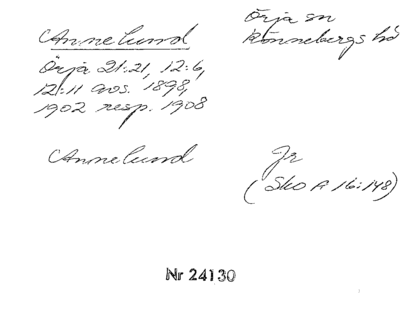 Annelund
Örja sn
Rönnebergs hd
Örja 21:21, 12:6,
12:11 avs. 1898,
1902 resp. 1908
Annelund
Jr
(Sko A 16:148)
Nr 24130